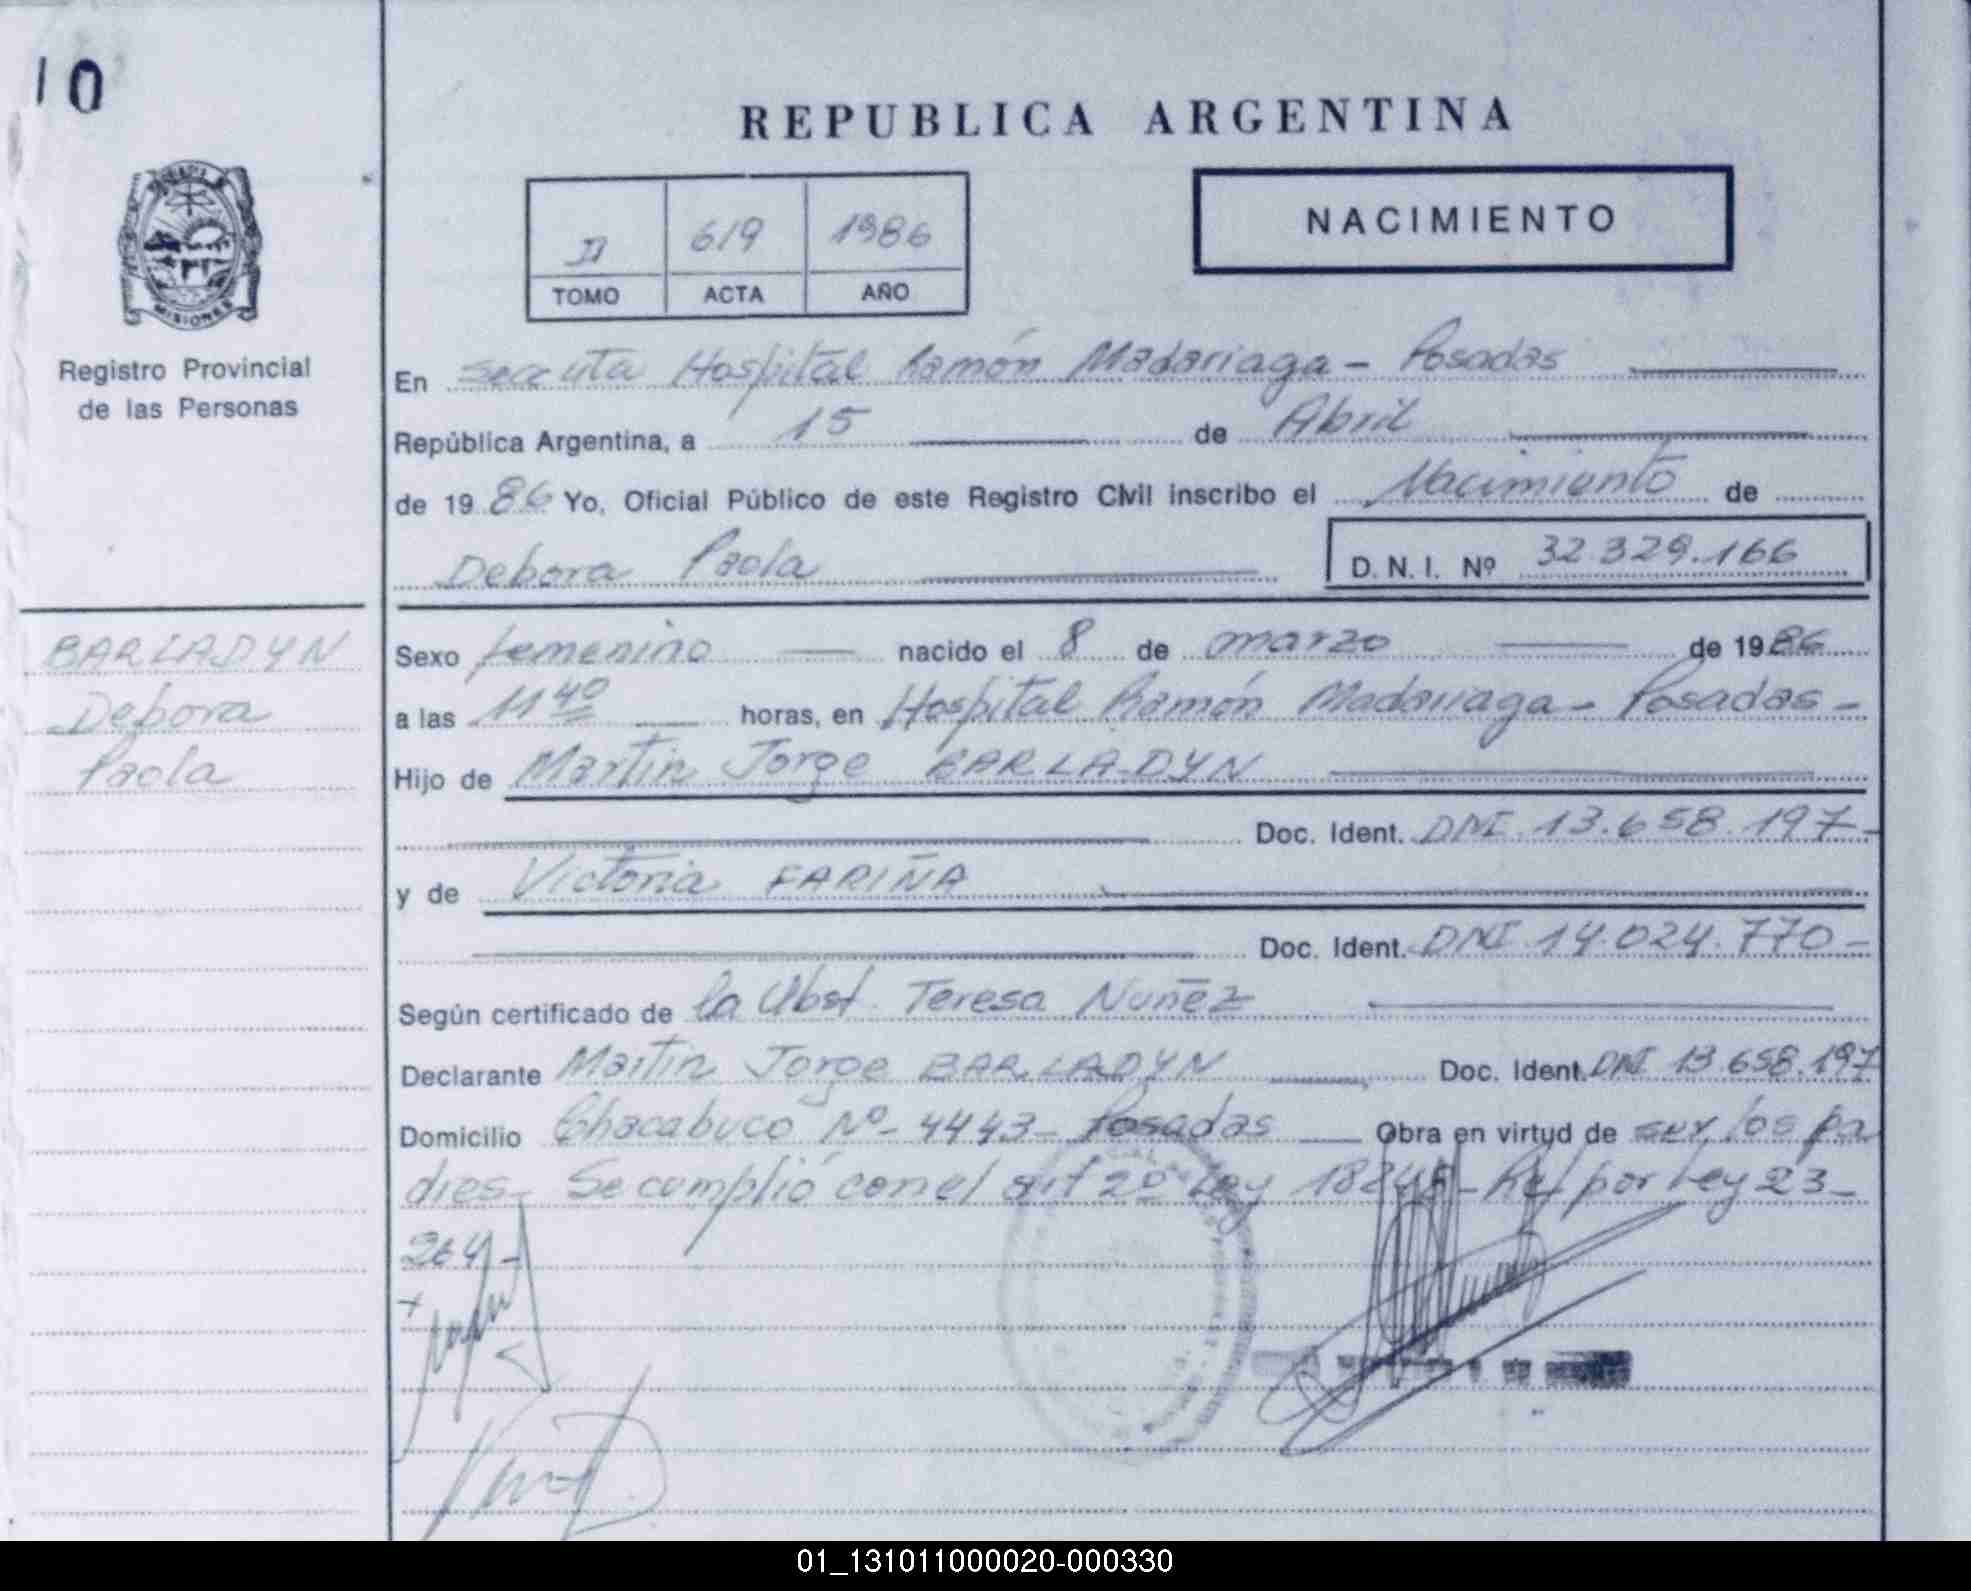 10
REPUBLICA ARGENTINA
II 619 1986
TOMO ACTA AÑO
NACIMIENTO
MISIONES
Registro Provincial
de las Personas
En Hospital Ramón Madariaga - Posadas
República Argentina, a 15 de Abril
de 1986 Yo, Oficial Público de este Registro Civil inscribo el Nacimiento de
Debora Paola D. N. I. Nº 32.329.166
BARLADYN
Debora
Paola
Sexo femenino nacido el 8 de marzo de 1986
a las 11 40 horas, en Hospital Ramón Madariaga - Posadas -
Hijo de Martin Jorge BARLADYN
Doc. Ident. DNI 13.658.197 -
y de Victoria FARIÑA
Doc. Ident. DNI 14.024.770 -
Según certificado de la Obst. Teresa Nuñez
Declarante Martin Jorge BARLADYN Doc. Ident. DNI 13.658.197
Domicilio Chacabuco Nº - 4443 - Posadas Obra en virtud de ser los pa
dres - Se cumplió con el art 2º Ley 18248 - Ref por Ley 23 -
264 -
01_131011000020-000330